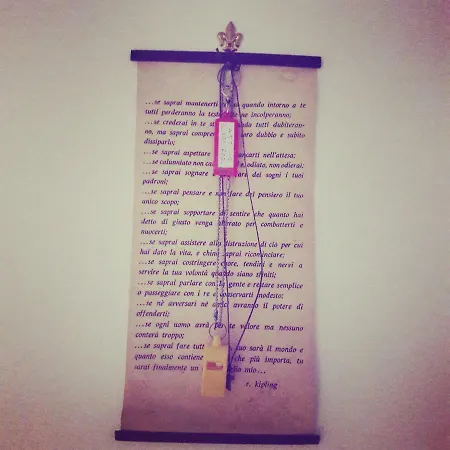 ...se saprai mantenerti quando intorno a te
tutti perderanno la testa ne incolperanno;
...se crederai in te tutti dubiteran-
no, ma saprai dubbio e subito
dissiparlo;
...se saprai aspettare nell'attesa;
...se calunniato non odiato, non odierai;
...se saprai sognare dei sogni i tuoi
padroni;
...se saprai pensare e del pensiero il tuo
unico scopo;
...se saprai sopportare di sentire che quanto hai
detto di giusto venga per combatterti e
nuocerti;
...se saprai assistere alla distruzione di ciò per cui
hai dato la vita, e ricominciare;
...se saprai costringere cuore, tendini e nervi a
servire la tua volontà quando siano sfiniti;
...se saprai parlare con la gente e restare semplice
o passeggiare con i re e conservarti modesto;
...se nè avversari nè avranno il potere di
offenderti;
...se ogni uomo avrà per te valore ma nessuno
conterà troppo;
...se saprai fare tutto tuo sarà il mondo e
quanto esso contiene che più importa, tu
sarai finalmente un mio...
r. kipling